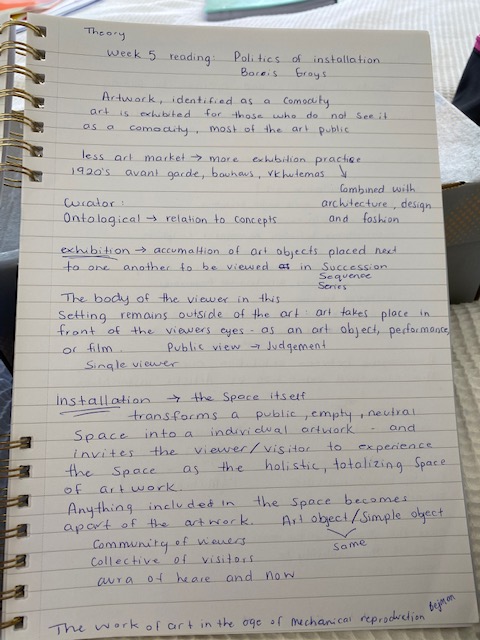 Theory
Week 5 reading: Politics of installation
Boreis Groys
Artwork, identified as a comoduty
art is exhibited for those who do not see it
as a comodity, most of the art public
less art market → more exhibition practice
1920's avant garde, bauhaus, vkhutemas
Combined with
architecture, design
and fashion
Curator:
Ontological → relation to concepts
exhibition → accumaltion of art objects placed next
to one another to be viewed in Succession
Sequence
Series
The body of the viewer in this
Setting remains outside of the art: art takes place in
front of the viewers eyes - as an art object, performance,
or film. Public view → Judgement
Single viewer
Installation → the Space itself
transforms a public, empty, neutral
Space into a individual artwork - and
invites the viewer/visitor to experience
the Space as the holistic, totalizing Space
of art work.
Anything included in the space becomes
apart of the artwork. Art object/Simple object
Same
Community of viewers
Collective of visitors
aura of heare and now
The work of art in the age of mechanical reproduction